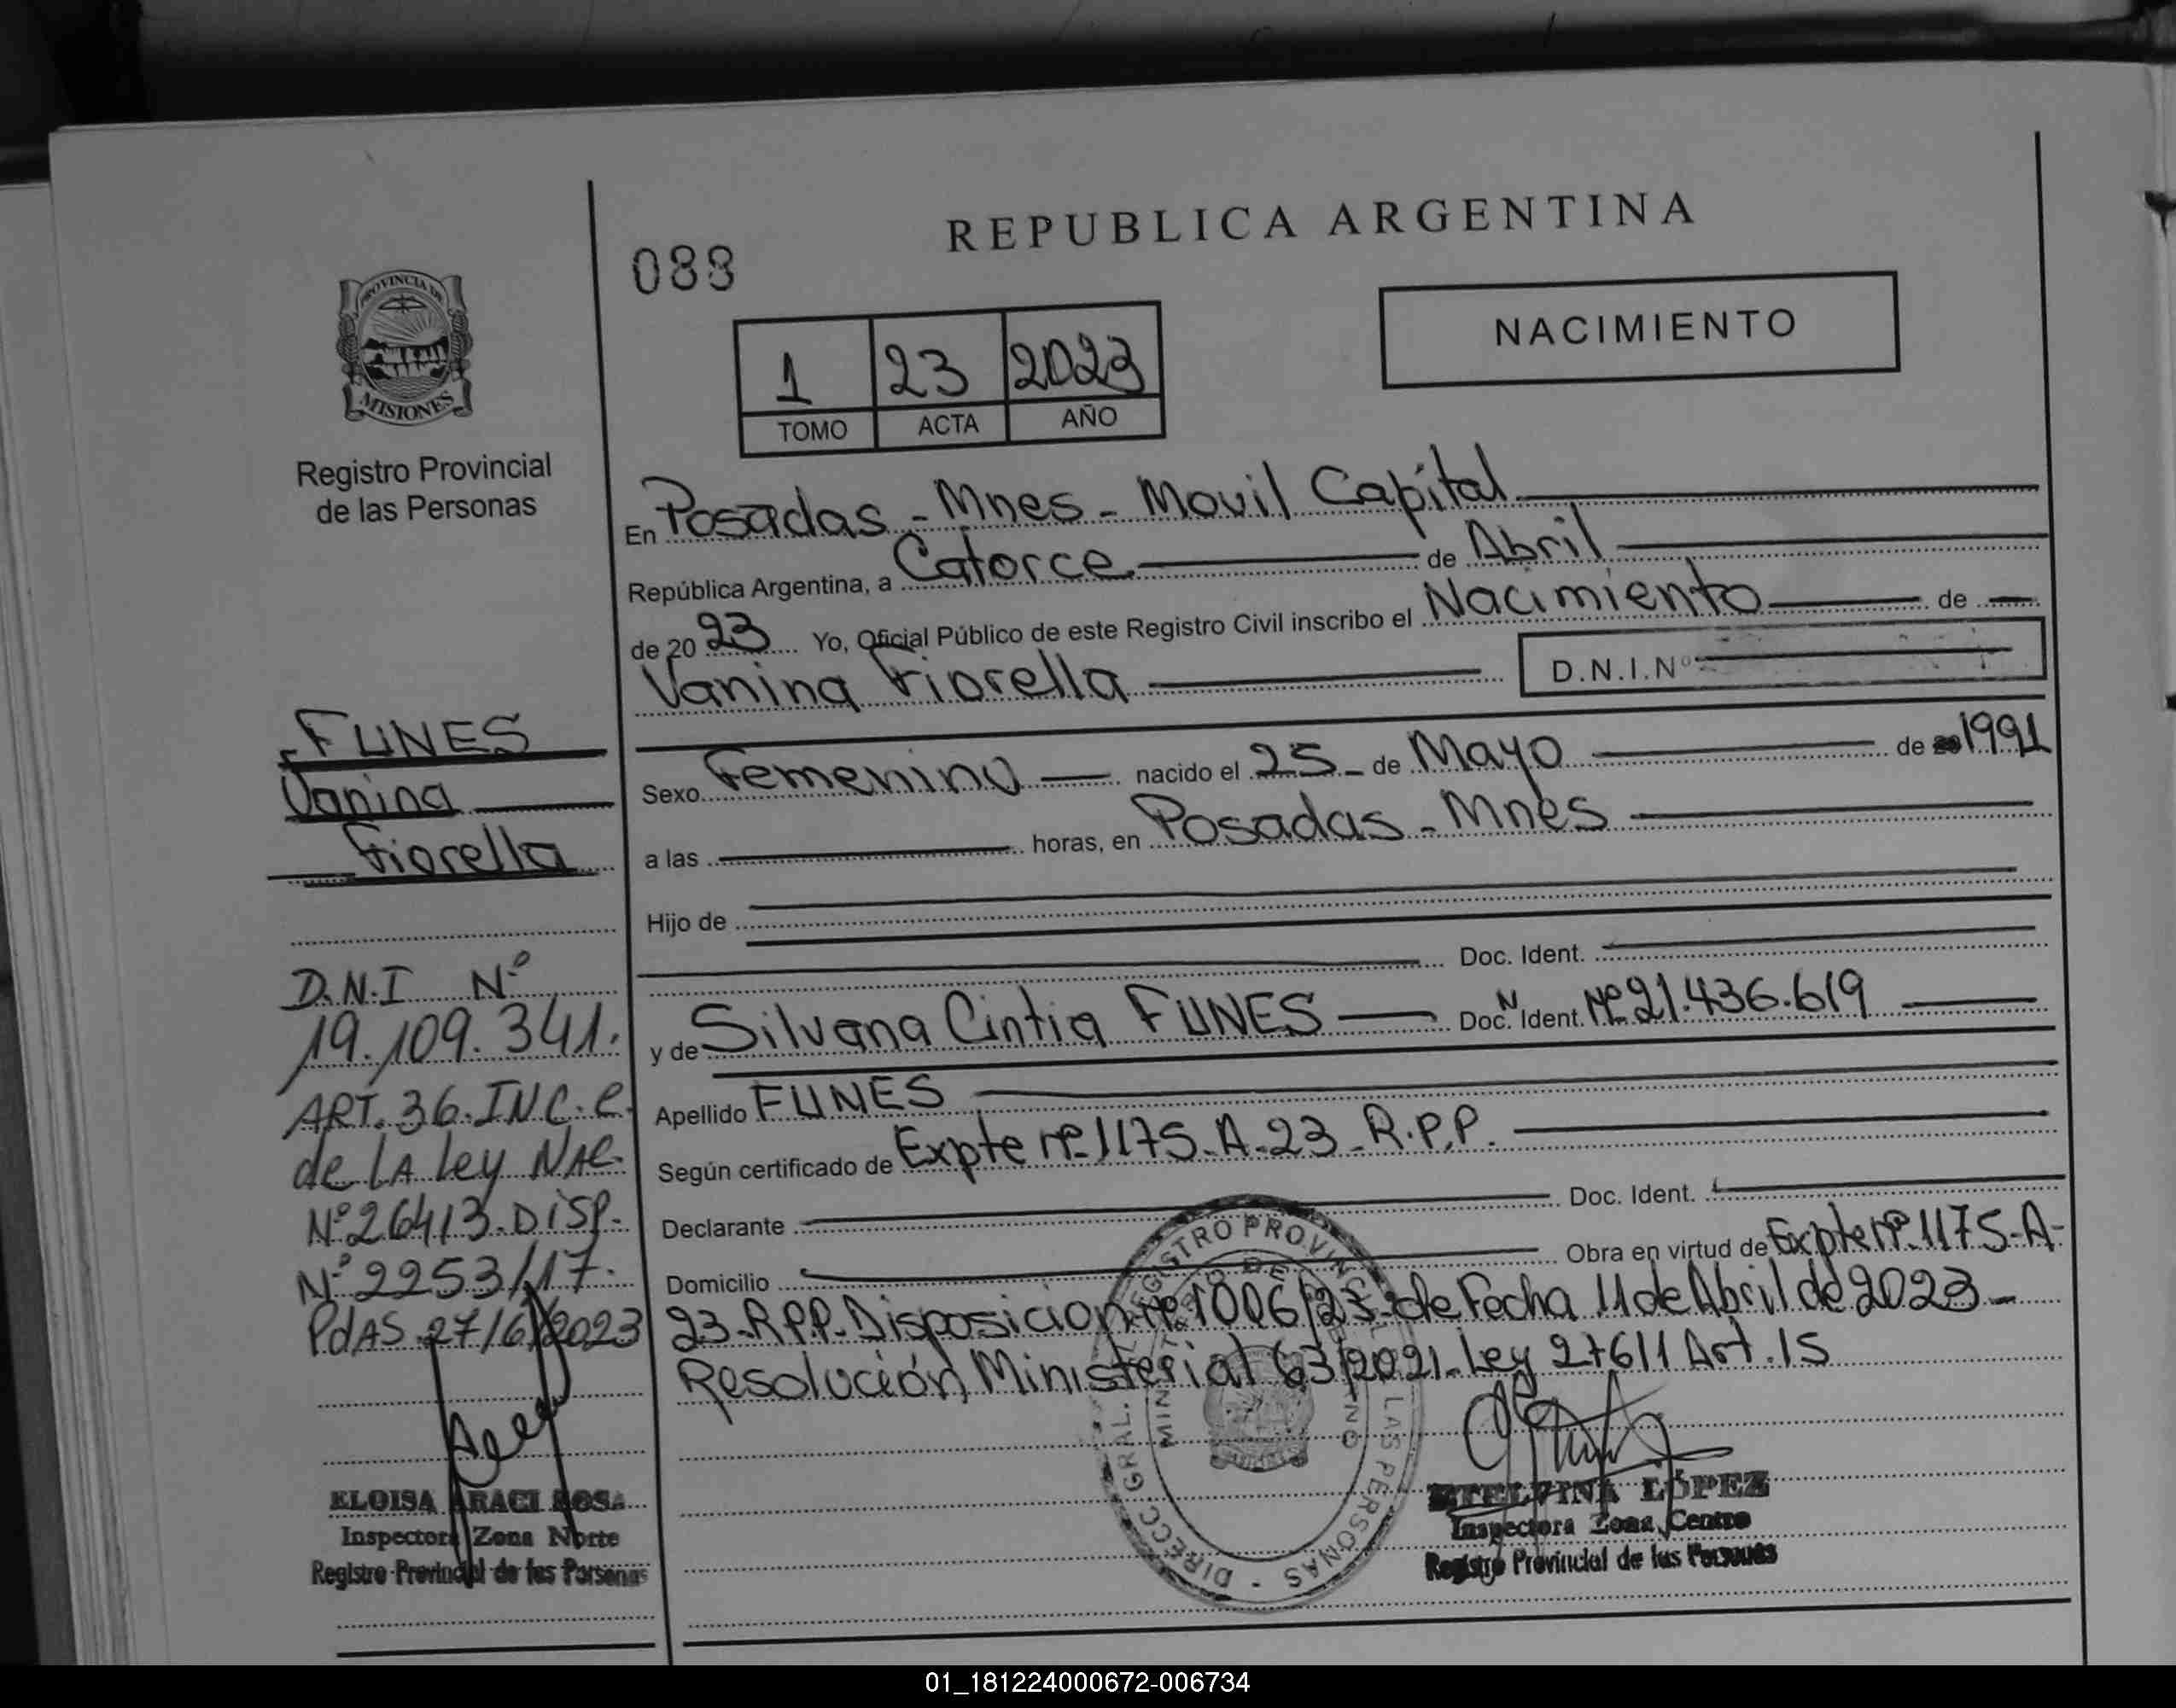 REPUBLICA ARGENTINA
088
NACIMIENTO
1 23 2023
TOMO ACTA AÑO
PROVINCIA DE
MISIONES
Registro Provincial
de las Personas
En Posadas - Mnes - Movil Capital
República Argentina, a Catorce de Abril
de 20 23 Yo, Oficial Público de este Registro Civil inscribo el Nacimiento de
Vanina Fiorella D.N.I.Nº
Sexo Femenino nacido el 25 de Mayo de 1991
a las horas, en Posadas - Mnes
Hijo de
Doc. Ident.
y de Silvana Cintia FUNES Doc. Ident. Nº 21.436.619
Apellido FUNES
Según certificado de Expte nº 1175-A-23-R.P.P.
Declarante Doc. Ident.
Domicilio Obra en virtud de Expte nº 1175-A-
23-R.P.P. Disposicion nº 1006/23 de Fecha 11 de Abril de 2023 -
Resolución Ministerial 63/2021 - Ley 27611 Art. 15
FUNES
Vanina
Fiorella
D.N.I Nº
19.109.341.
ART. 36. INC. e.
de LA Ley NAC.
Nº 26413. DISP.
Nº 2253/17.
PdAS 27/6/2023
ELOISA ARACI ROSA
Inspectora Zona Norte
Registro Provincial de las Personas
ETELVINA LÓPEZ
Inspectora Zona Centro
Registro Provincial de las Personas
01_181224000672-006734